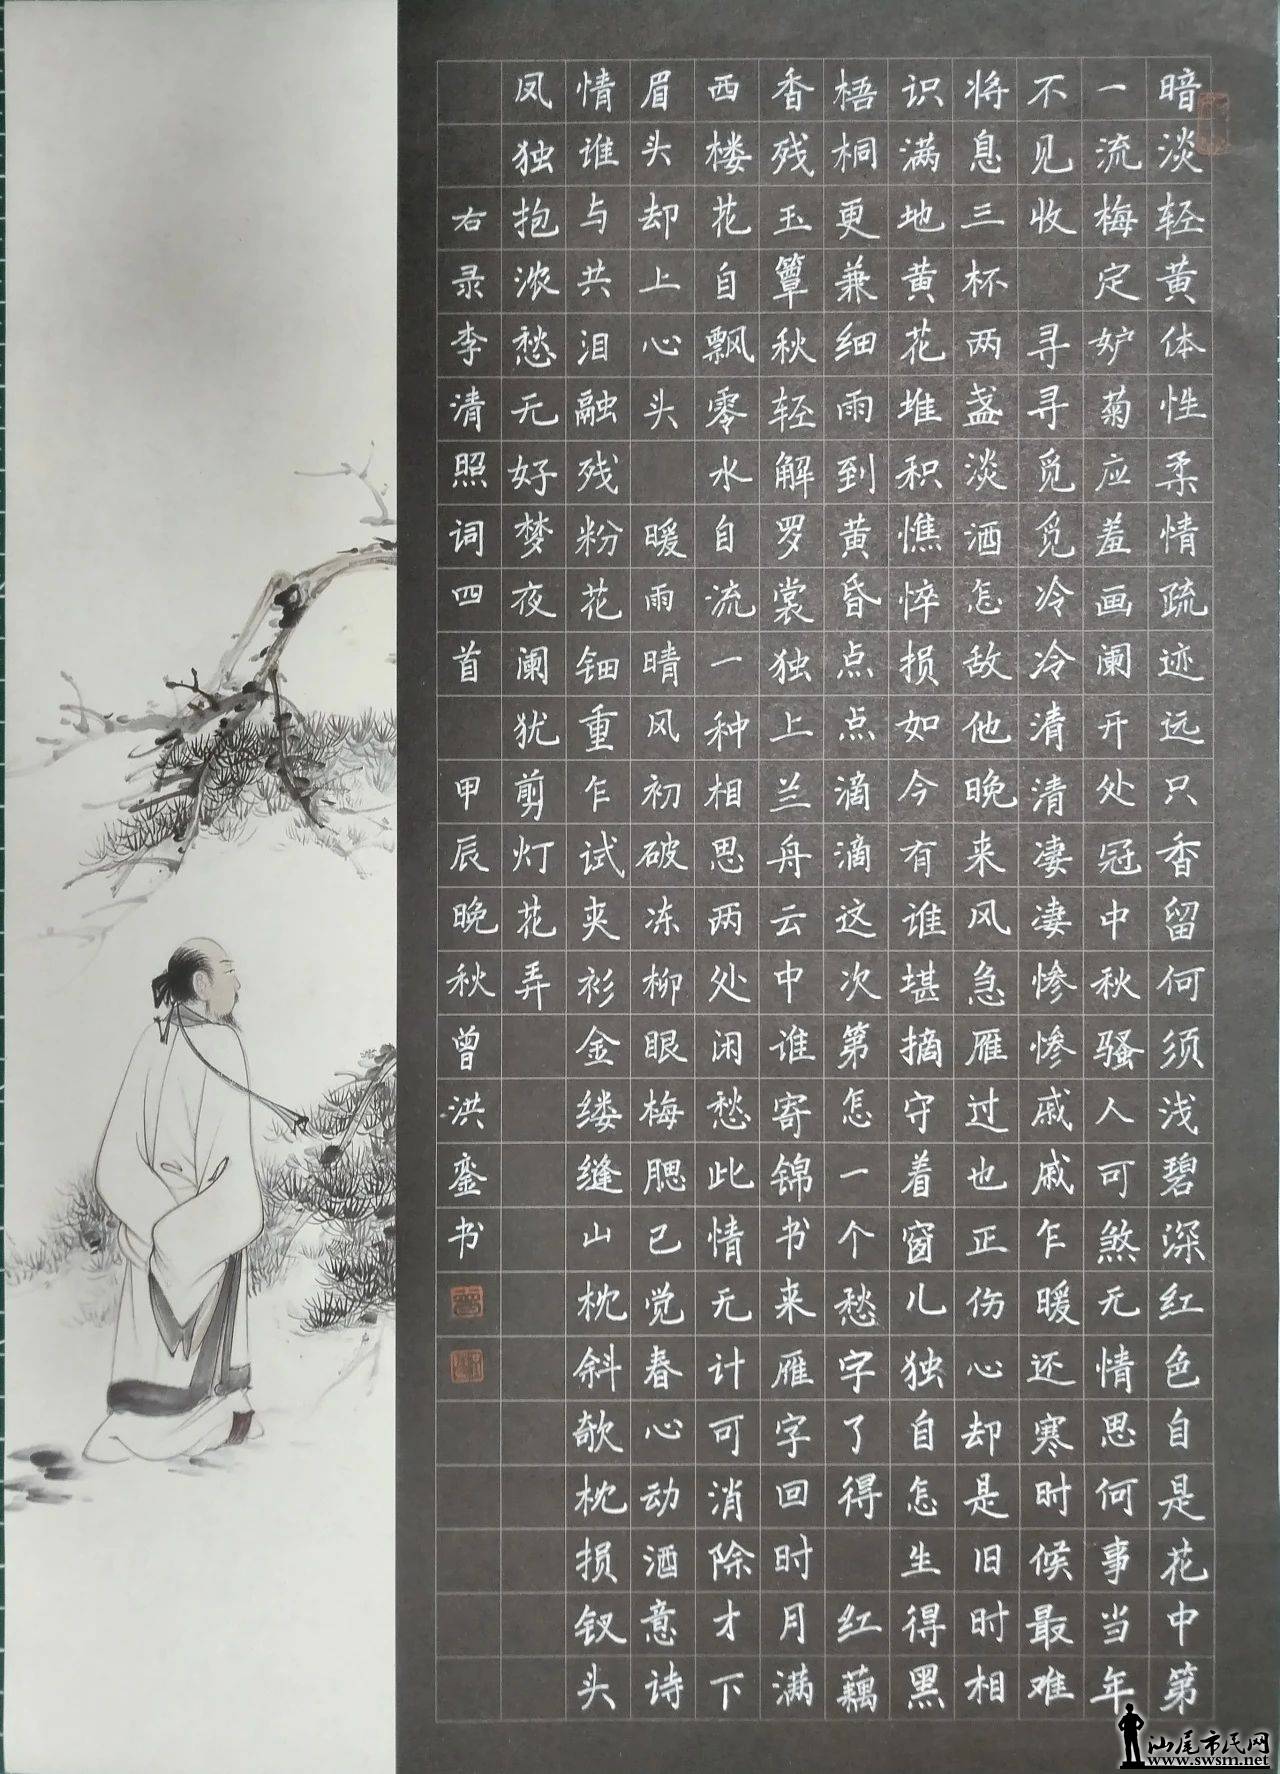 暗淡轻黄体性柔情疏迹远只香留何须浅碧深红色自是花中第
一流梅定妒菊应羞画阑开处冠中秋骚人可煞无情思何事当年
不见收 寻寻觅觅冷冷清清凄凄惨惨戚戚乍暖还寒时候最难
将息三杯两盏淡酒怎敌他晚来风急雁过也正伤心却是旧时相
识满地黄花堆积憔悴损如今有谁堪摘守着窗儿独自怎生得黑
梧桐更兼细雨到黄昏点点滴滴这次第怎一个愁字了得 红藕
香残玉簟秋轻解罗裳独上兰舟云中谁寄锦书来雁字回时月满
西楼花自飘零水自流一种相思两处闲愁此情无计可消除才下
眉头却上心头 暖雨晴风初破冻柳眼梅腮已觉春心动酒意诗
情谁与共泪融残粉花钿重乍试夹衫金缕缝山枕斜欹枕损钗头
凤独抱浓愁无好梦夜阑犹剪灯花弄
右录李清照词四首 甲辰晚秋曾洪銮书
汕尾市民网
www.swsm.net